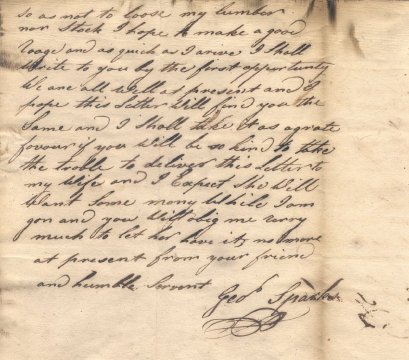 so as not to loose my lumber
nor Stock I hope to make a good
voage and as quick as I arive I Shall
write to you by the first oppurtunity
We are all well as present and I
hope this Letter Will find you the
Same and I Shall take it as a grate
favour if you will be so kind to take
the troble to deliver this letter to
my Wife and I Expect She Will
Want Some mony While I am
gon and you Will oblig me verry
much to let her have it, no more
at present from your friend
and humble Servent
Geor. Sparks